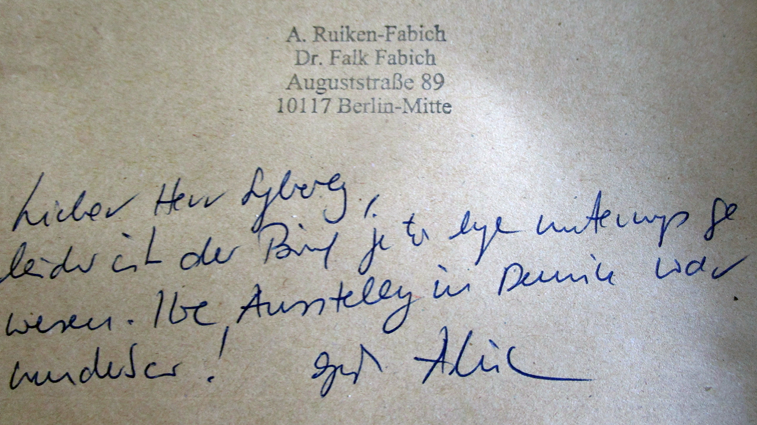 A. Ruiken-Fabich
Dr. Falk Fabich
Auguststraße 89
10117 Berlin-Mitte
Lieber Herr Syberberg,
leider ist der Brief unterwegs ge
wesen. Ihre Ausstellung in Demmin war
wunderbar!